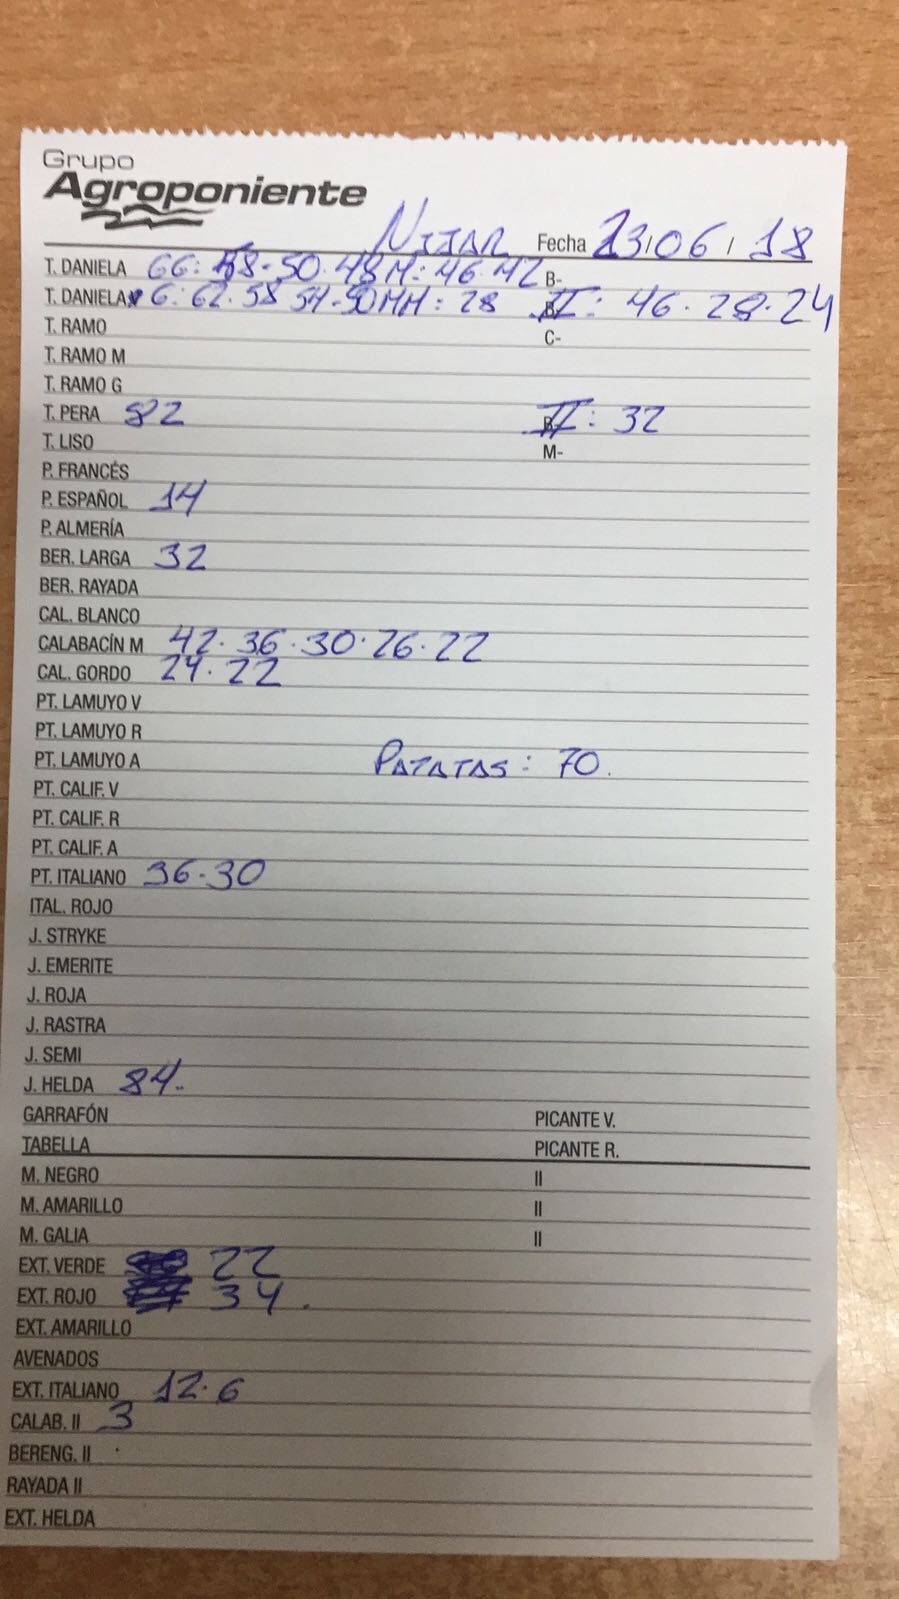 Grupo
Agroponiente
NIJAR Fecha 23/06/18
T. DANIELA GG: 58-50.48 M: 46.42 B-
T. DANIELA G: 62.58 54-50 MM: 28 II: 46.28.24
T. RAMO C-
T. RAMO M
T. RAMO G
T. PERA 82 II: 32
T. LISO M-
P. FRANCÉS
P. ESPAÑOL 14
P. ALMERÍA
BER. LARGA 32
BER. RAYADA
CAL. BLANCO
CALABACÍN M 42.36.30.26.22
CAL. GORDO 24.22
PT. LAMUYO V
PT. LAMUYO R
PT. LAMUYO A PATATAS: 70.
PT. CALIF. V
PT. CALIF. R
PT. CALIF. A
PT. ITALIANO 36-30
ITAL. ROJO
J. STRYKE
J. EMERITE
J. ROJA
J. RASTRA
J. SEMI
J. HELDA 84.
GARRAFÓN PICANTE V.
TABELLA PICANTE R.
M. NEGRO II
M. AMARILLO II
M. GALIA II
EXT. VERDE 22
EXT. ROJO 34.
EXT. AMARILLO
AVENADOS
EXT. ITALIANO 12.6
CALAB. II 3
BERENG. II
RAYADA II
EXT. HELDA